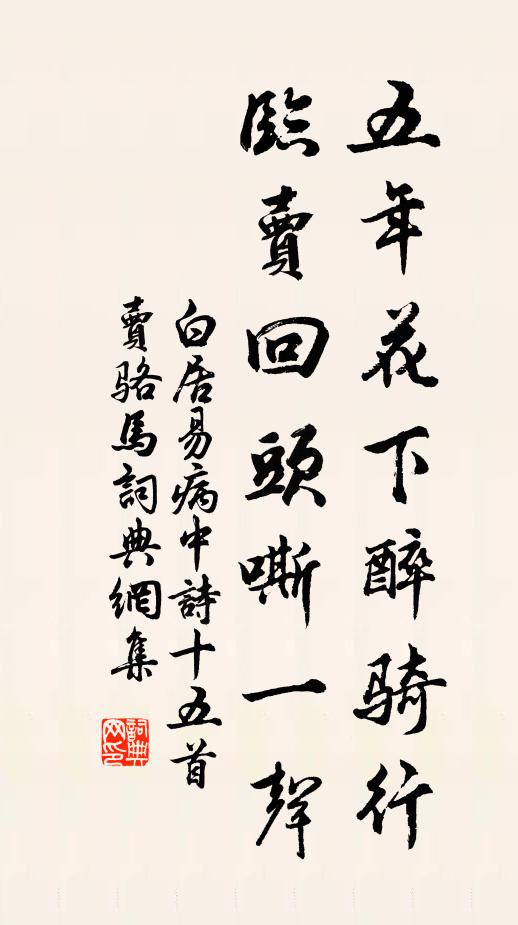 五年花下醉骑行
臨賣回頭嘶一聲
白居易病中詩十五首
賣骆馬詞典網集
詞典网印